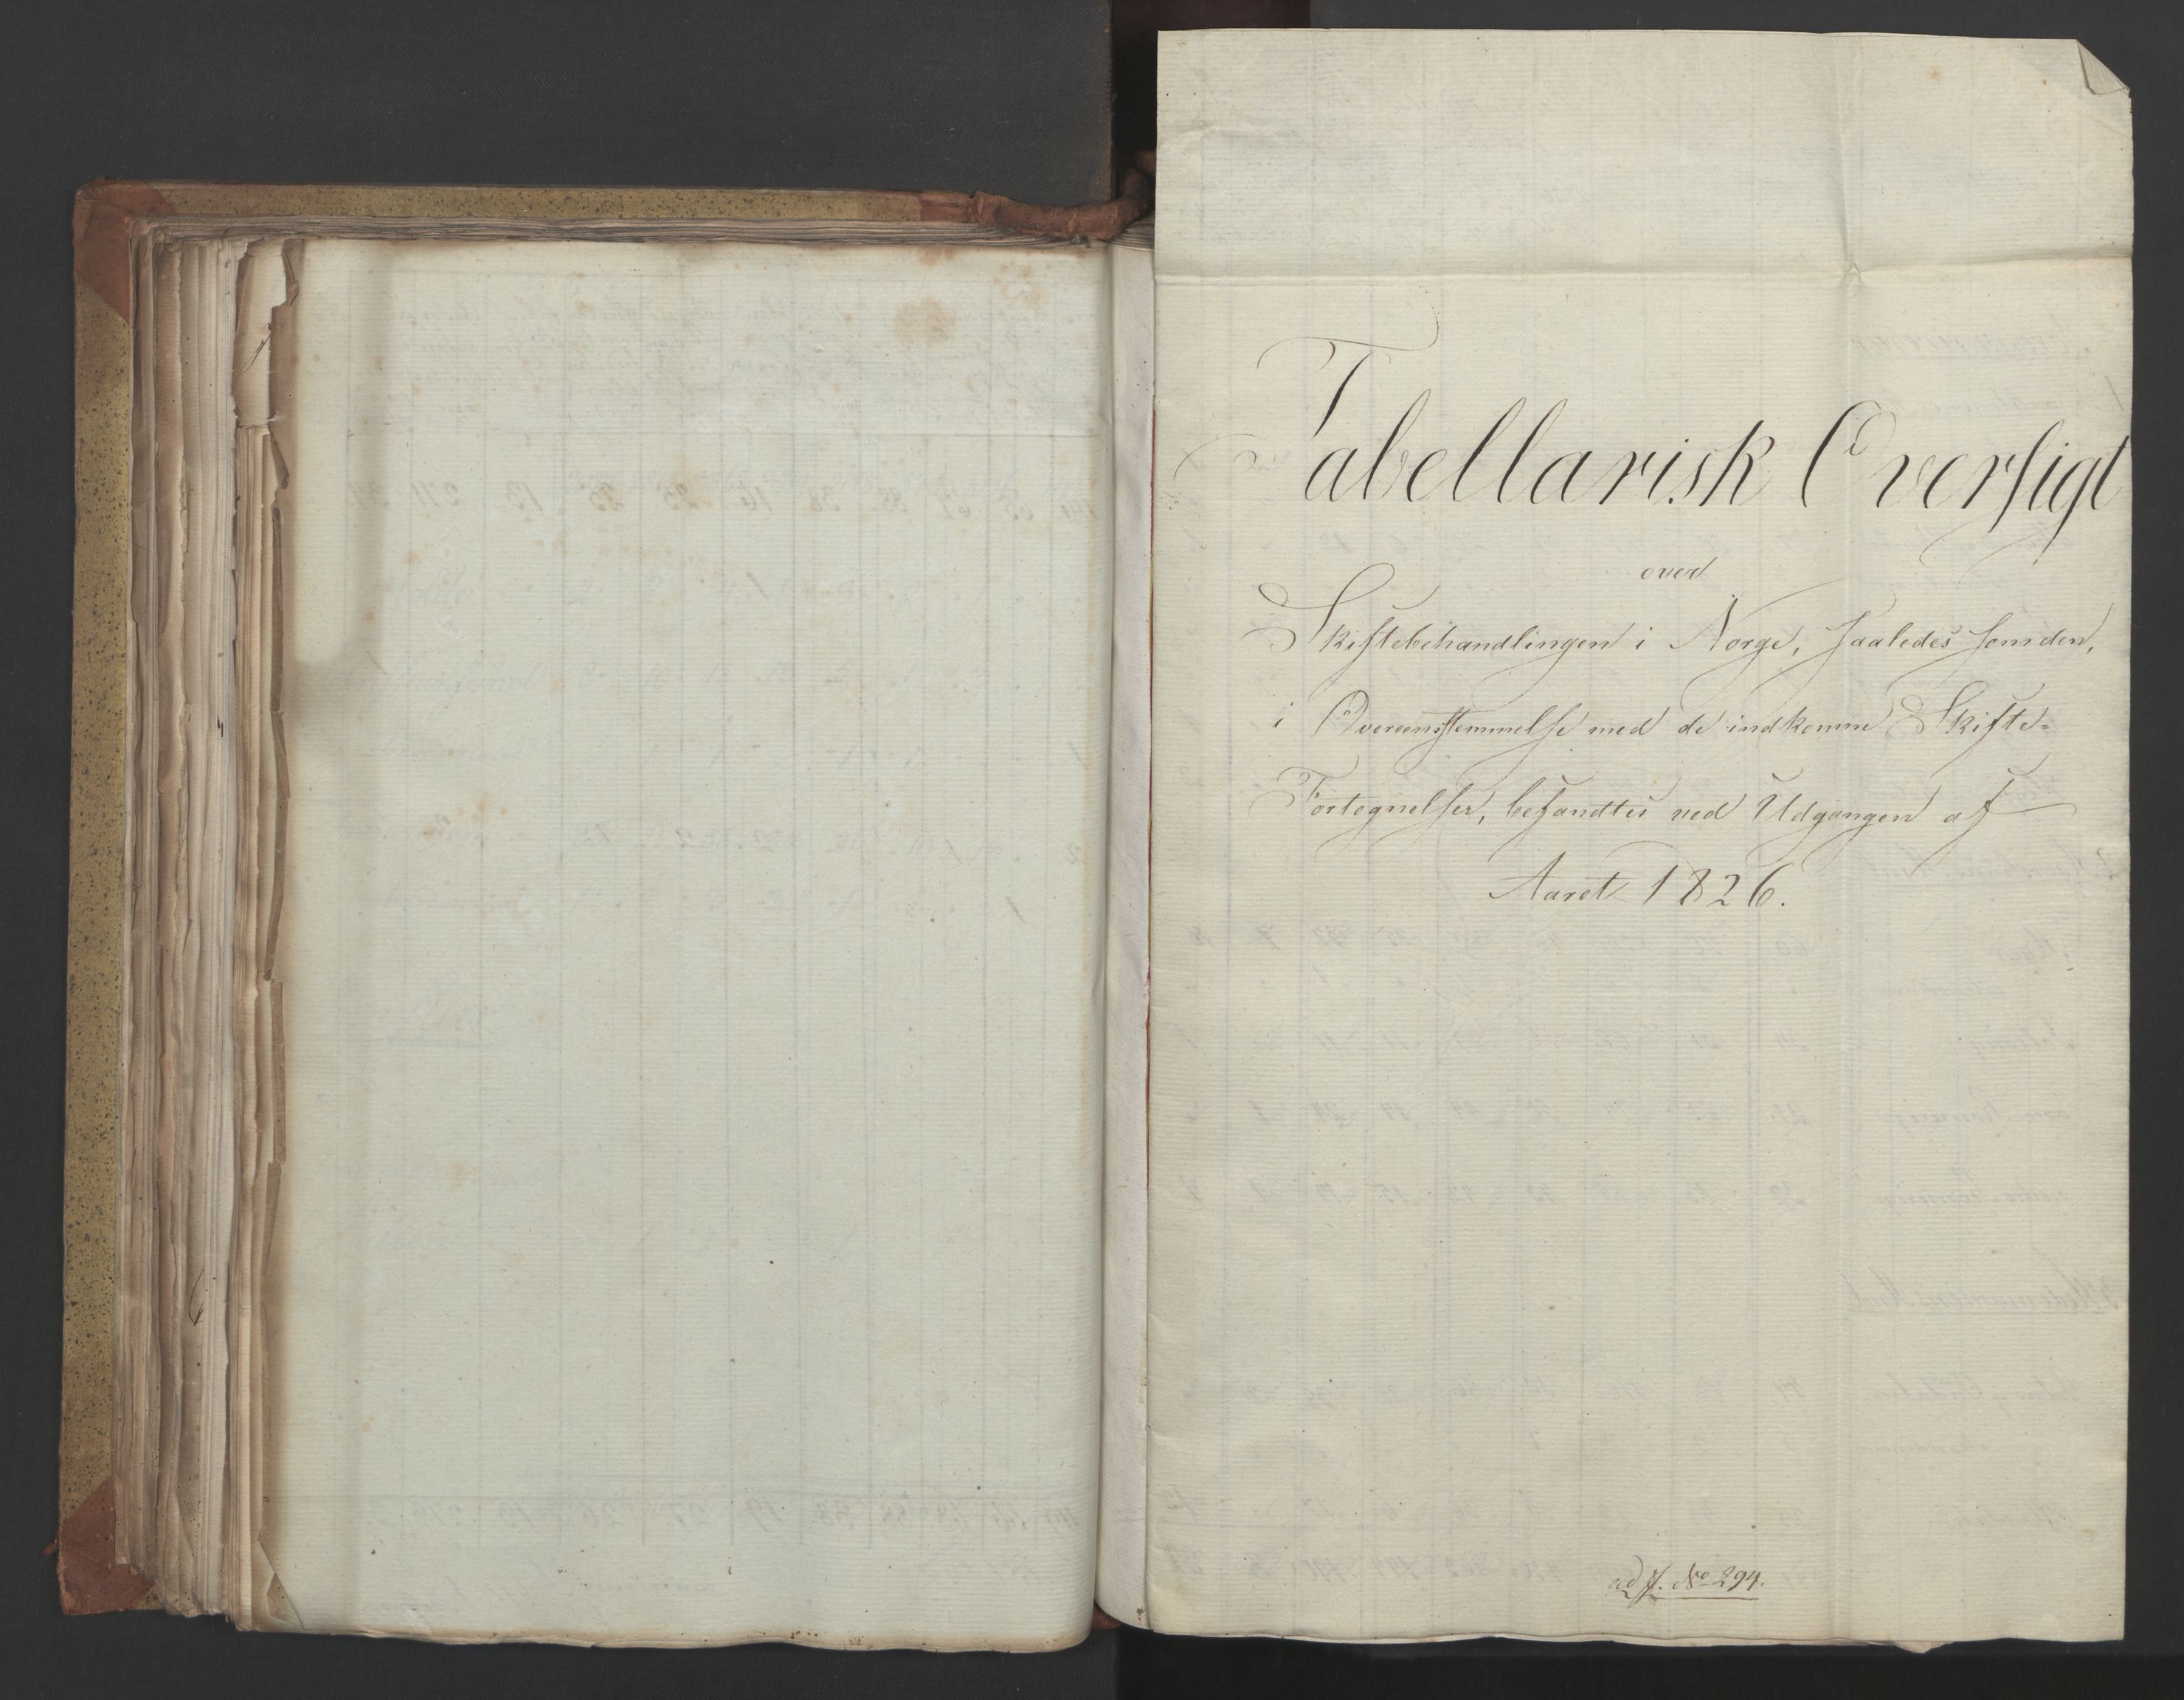 Tabellarisk Oversigt
over
Skiftebehandlingen i Norge, saaledes som den,
i Overeensstemmelse med de indkomne Skifte-
Fortegnelser, befandtes ved Udgangen af
Aaret 1826.
ad J. No 294.